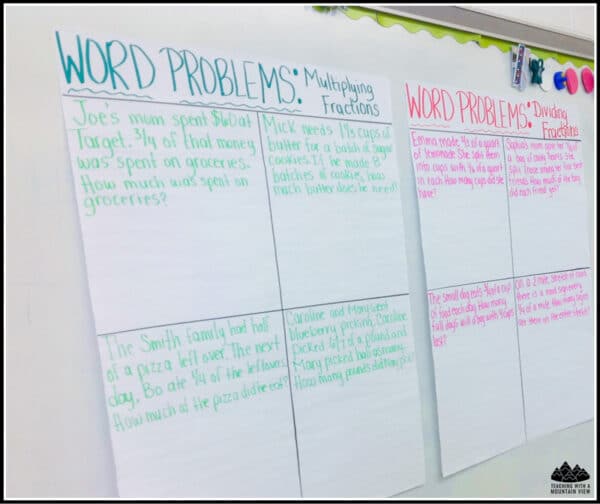 WORD PROBLEMS: Multiplying
Fractions
Joe's mom spent $60 at
Target. 3/4 of that money
was spent on groceries.
How much was spent on
groceries?
Mick needs cups of
butter for a batch of sugar
cookies. If he made
batches of cookies, how
much butter does he need?
The Smith family had half
of a pizza left over. The next
day, Bo ate 1/4 of the leftovers.
How much of the pizza did he eat?
Caroline and Mary went
blueberry picking. Caroline
picked of a pound and
Mary picked half as many.
How many pounds did Mary pick?
WORD PROBLEMS: Dividing
Fractions
Emma made of a quart
of lemonade. She split them
into cups with of a quart
in each. How many cups did she
have?
Sophia's mom gave her of
a bag of candy hearts. She
split those among her best
friends. How much of the bag
did each friend get?
The small dog eats of a cup
of food each day. How many
full days will a bag with cups
last?
On a 2 mile stretch of road,
there is a road sign every
of a mile. How many signs
are there on the entire stretch?
TEACHING WITH A
MOUNTAIN VIEW